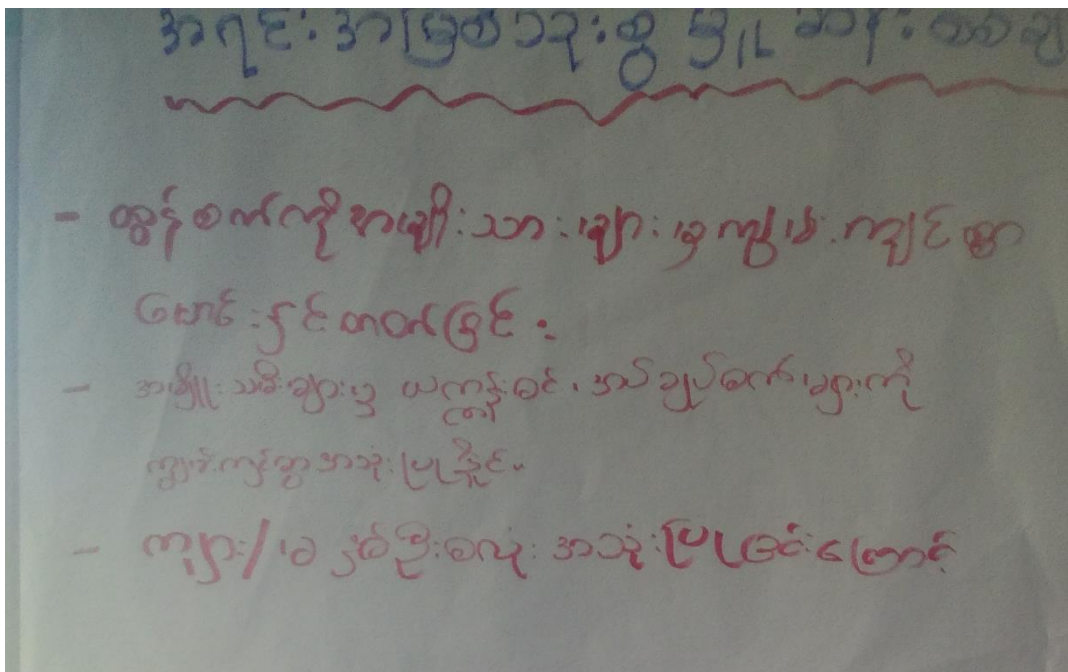 အရင်းအမြစ်သုံးစွဲမှု ဆန်းစစ်
- ထွန်စက်ကိုအမျိုးသားများမှကျွမ်းကျင်စွာ
မောင်းနှင်တတ်ခြင်း
- အမျိုးသမီးများမှ ယက္ကန်းစင်၊ အပ်ချုပ်စက်များကို
ကျွမ်းကျင်စွာအသုံးပြုနိုင်။
- ကျား/မ နှစ်ဦးစလုံး အသုံးပြုခြင်းကြောင့်